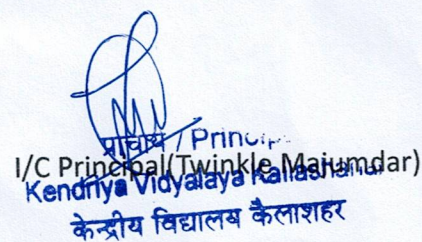 प्राचार्य / Principal
I/C Principal(Twinkle Majumdar)
Kendriya Vidyalaya Kailashahar
केन्द्रीय विद्यालय कैलाशहर